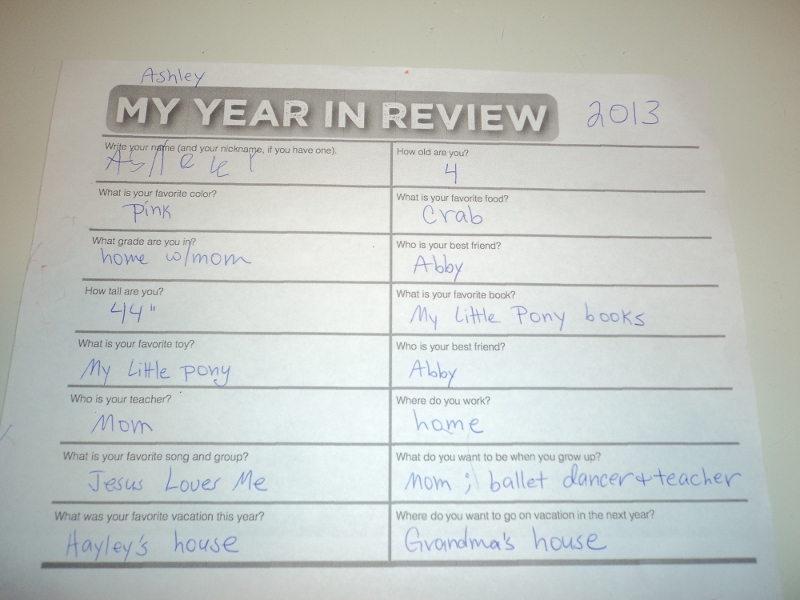 Ashley
MY YEAR IN REVIEW 2013
Write your name (and your nickname, if you have one).
Ashley
How old are you?
4
What is your favorite color?
pink
What is your favorite food?
Crab
What grade are you in?
home w/mom
Who is your best friend?
Abby
How tall are you?
44"
What is your favorite book?
My Little Pony books
What is your favorite toy?
My Little pony
Who is your best friend?
Abby
Who is your teacher?
Mom
Where do you work?
home
What is your favorite song and group?
Jesus Loves Me
What do you want to be when you grow up?
Mom ; ballet dancer + teacher
What was your favorite vacation this year?
Hayley's house
Where do you want to go on vacation in the next year?
Grandma's house